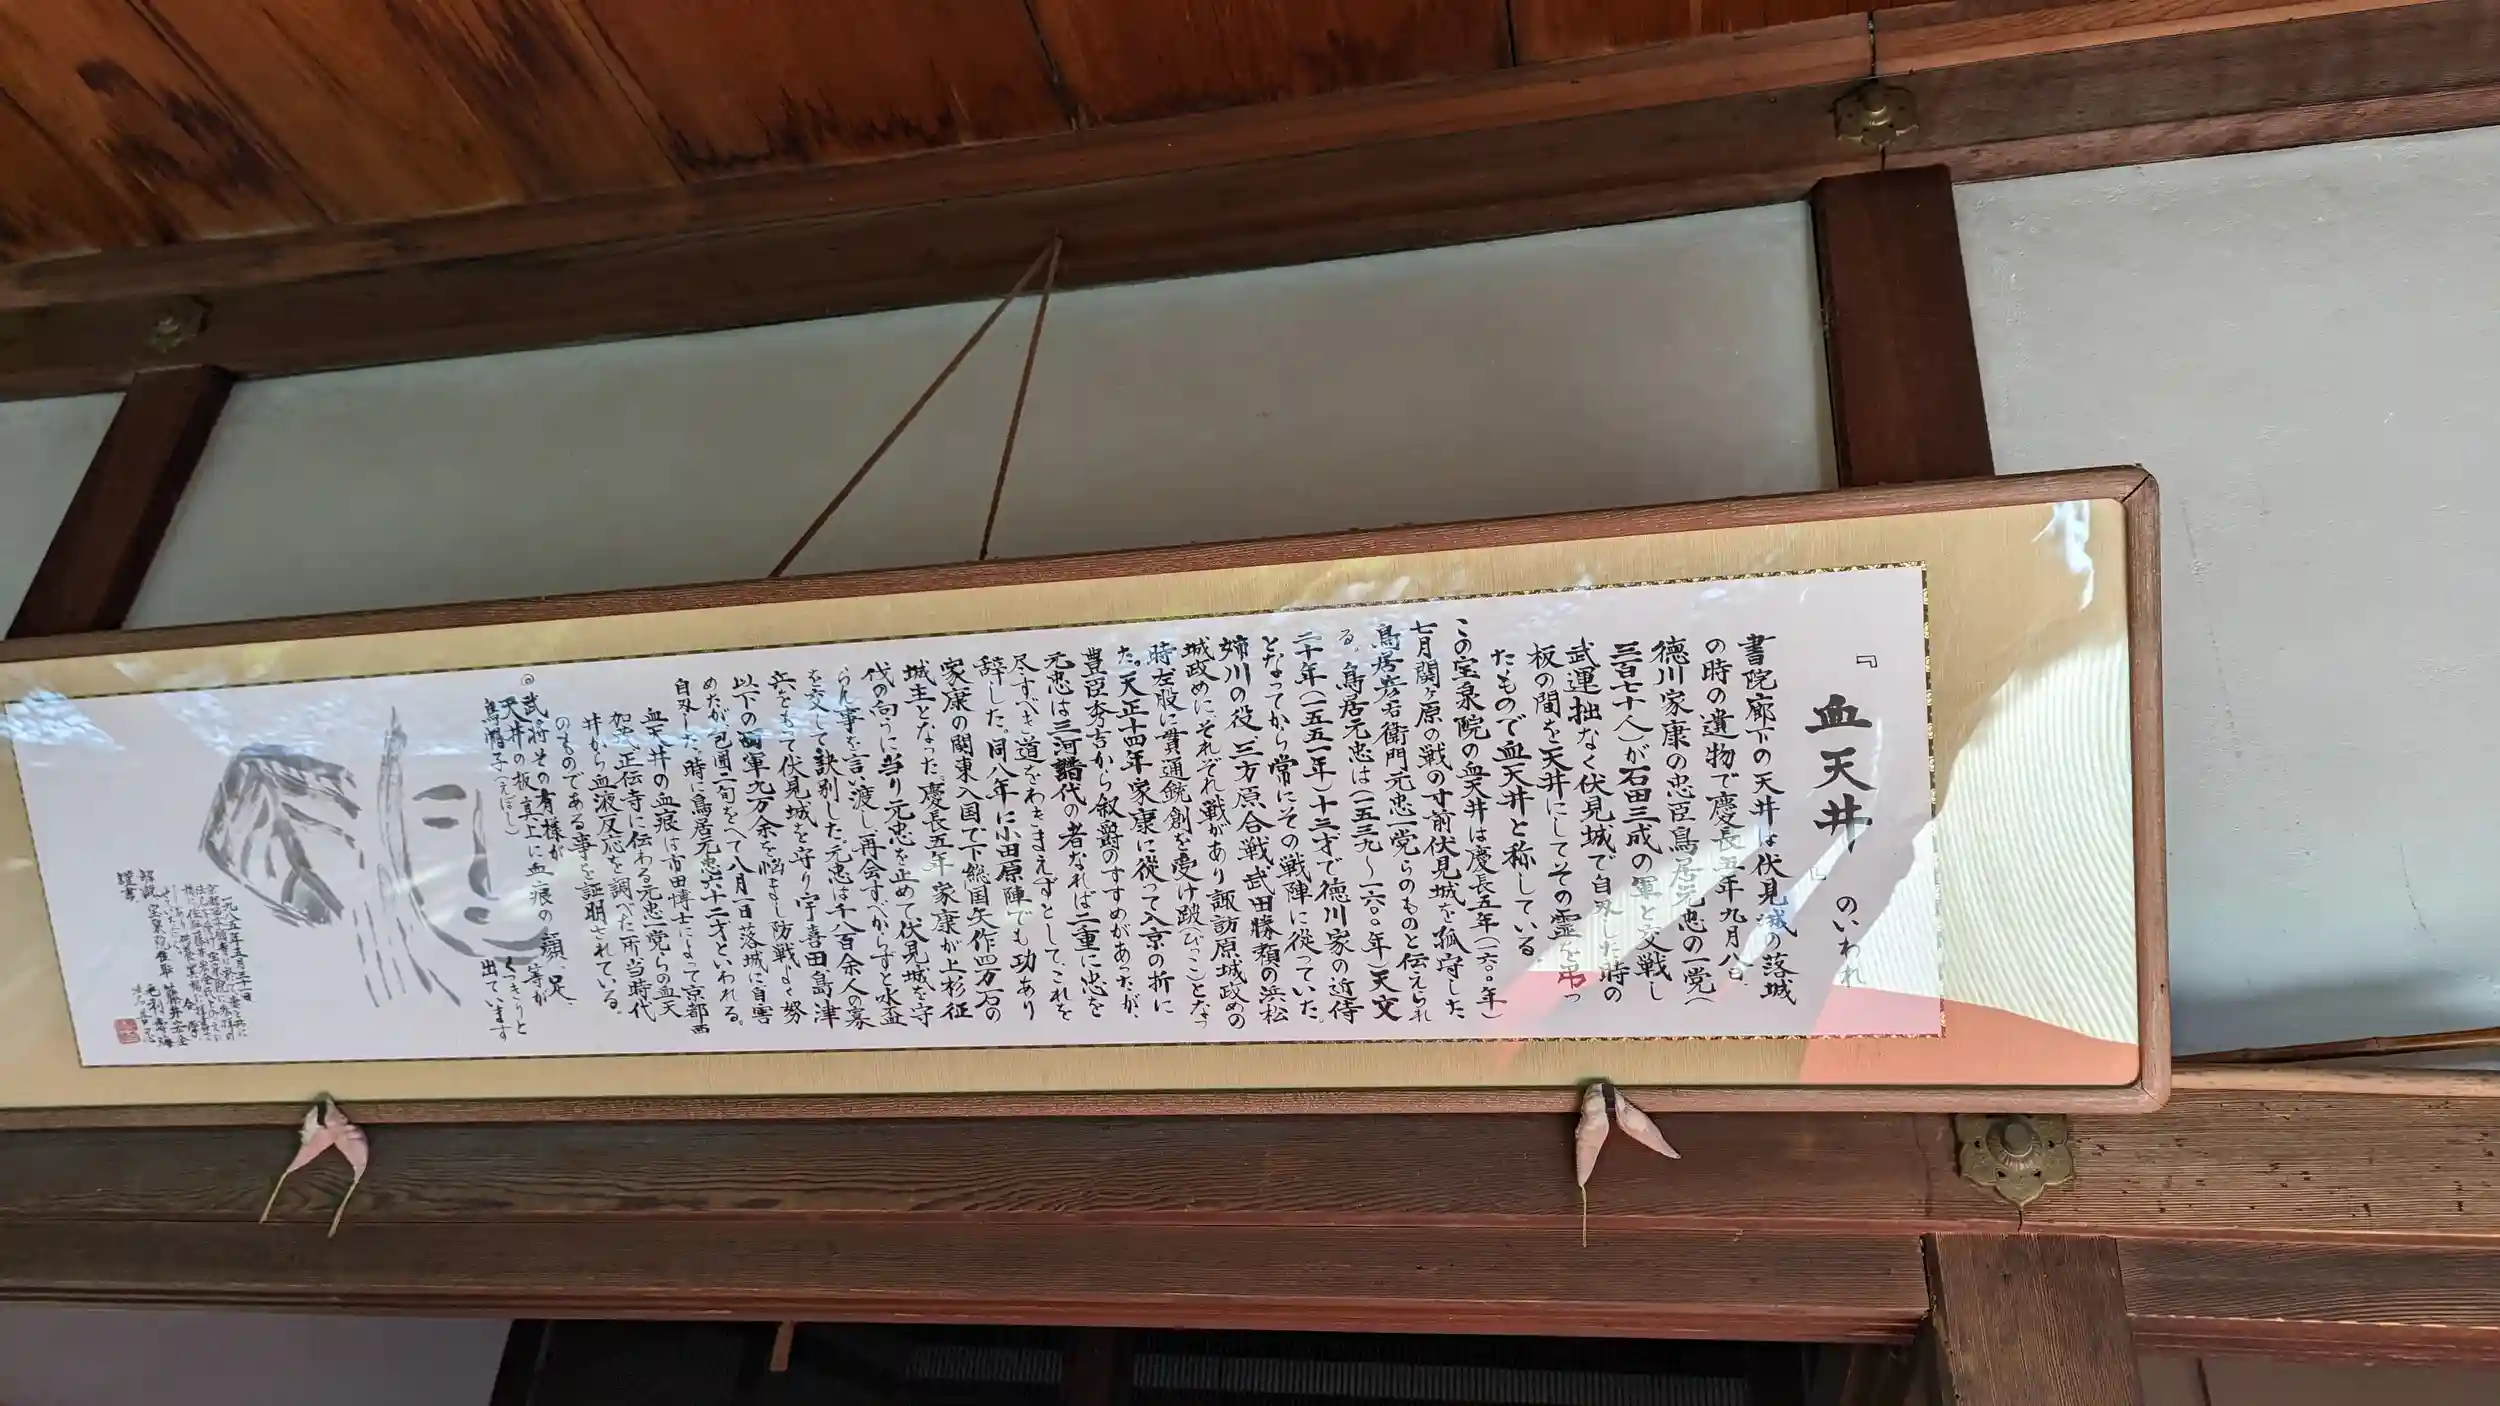 『血天井』のいわれ
書院廊下の天井は伏見城の落城
の時の遺物で慶長五年九月八日
徳川家康の忠臣鳥居元忠の一党(
三百七十人)が石田三成の軍と交戦し
武運拙なく伏見城で自刃した時の
板の間を天井にしてその霊を弔っ
たもので血天井と称している。
この宝泉院の血天井は慶長五年(一六〇〇年)
七月関ヶ原の戦の寸前伏見城を孤守した
鳥居彦右衛門元忠一党らのものと伝えられ
る。鳥居元忠は(一五三九～一六〇〇年)天文
二十年(一五五一年)十三才で徳川家の近侍
となってから常にその戦陣に従っていた。
姉川の役、三方原合戦、武田勝頼の浜松
城政めにそれぞれ戦があり諏訪原城政めの
時左股に貫通銃創を受け跛(びっこ)となっ
た。天正十四年家康に従って入京の折に
豊臣秀吉から叙爵のすすめがあったが、
元忠は三河譜代の者なれば二重に忠を
尽すべき道をわきまえずとして、これを
辞した。同八年に小田原陣でも功あり
家康の関東入国で下総国矢作四万石の
城主となった。慶長五年家康が上杉征
伐の向うに当り元忠を止めて伏見城を守
らん事を言い渡し、再会すべからずと水盃
を交して訣別した。元忠は千八百余人の寡
兵をもって伏見城を守り宇喜田、島津
以下の西軍九万余を悩まし防戦よく努
めたが包囲二旬をへて八月一日落城に自害
自刃した。時に鳥居元忠六十二才といわれる。
血天井の血痕は市田博士によって京都西
加茂正伝寺に伝わる元忠一党らの血天
井から血液反応を調べた所、当時代
のものである事を証明されている。
◎武将その有様が
天井の板真上に血痕の顔、足、等が
烏帽子(えぼし) くっきりと
出ています
一九八五年五月三十一日